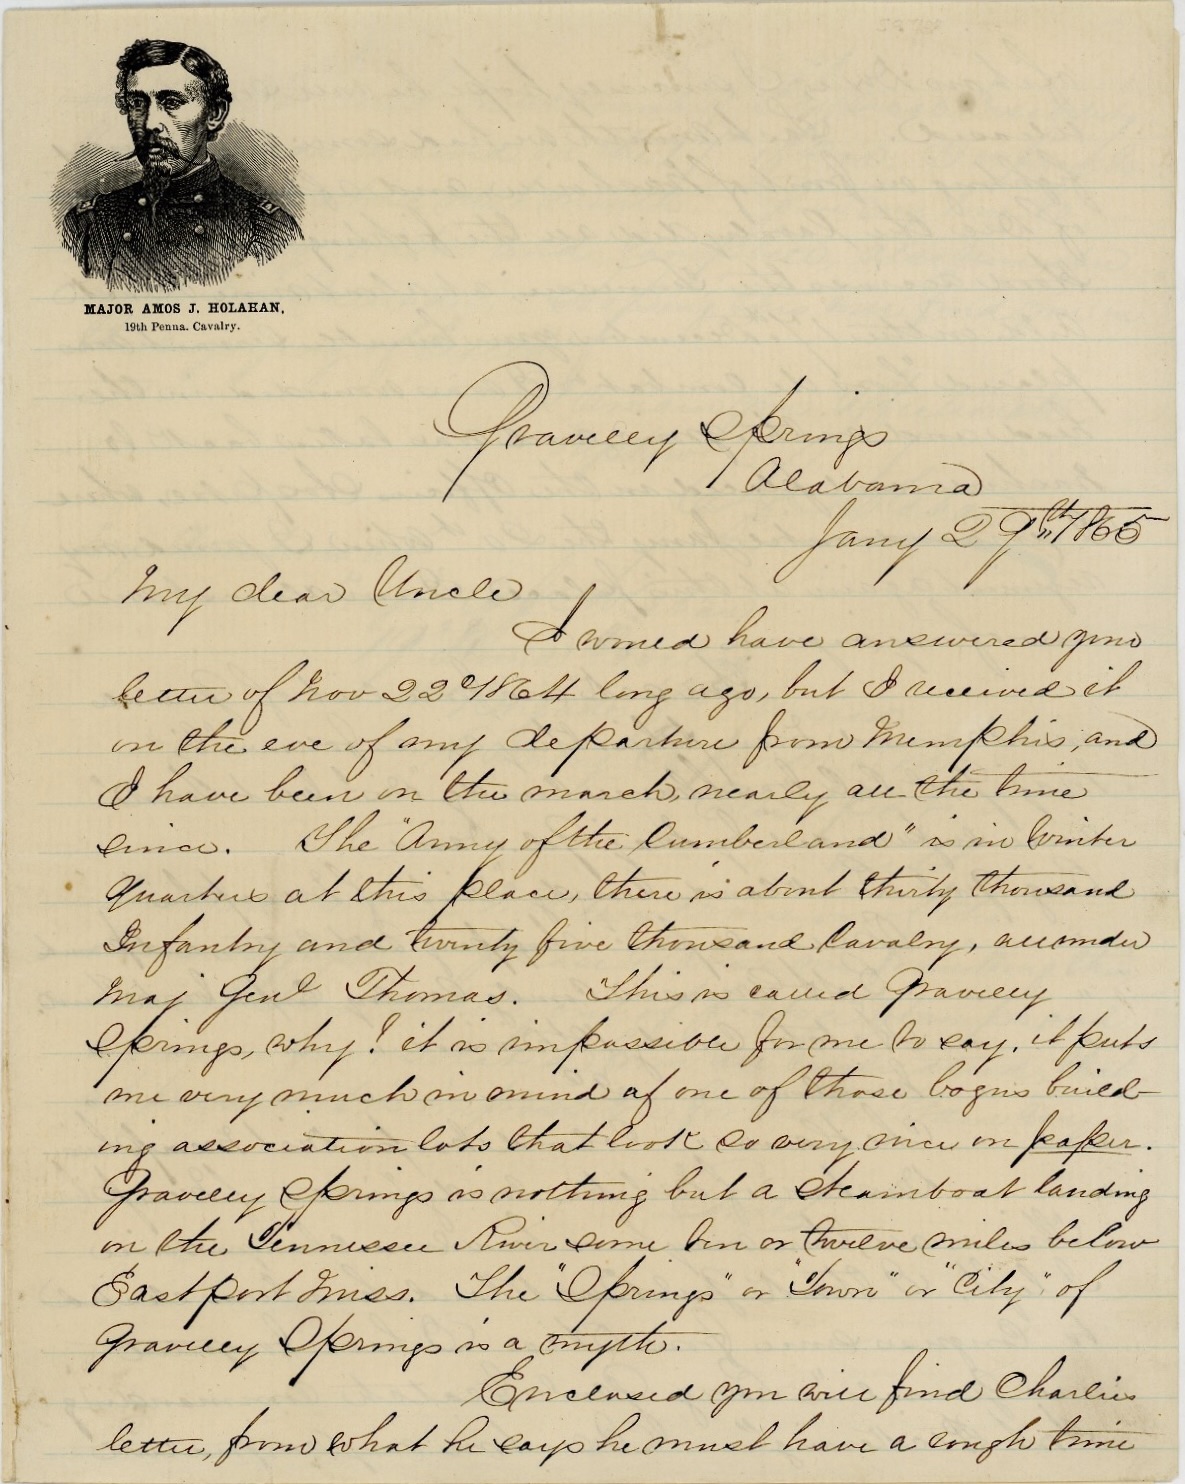 MAJOR AMOS J. HOLAHAN,
19th Penna. Cavalry.
Gravelly Springs
Alabama
Jany 29th 1865
My dear Uncle
I would have answered your
letter of Nov 22d 1864 long ago, but I received it
on the eve of my departure from Memphis, and
I have been on the march, nearly all the time
since. The "Army of the Cumberland" is in Winter
Quarters at this place, there is about thirty thousand
Infantry and twenty five thousand Cavalry, all under
Maj Genl Thomas. This is called Gravelly
Springs, why? it is impossible for me to say, it puts
me very much in mind of one of those bogus build-
ing association lots that look so very nice on paper.
Gravelly Springs is nothing but a steamboat landing
on the Tennessee River some ten or twelve miles below
Eastport Miss. The "Springs" or "Town" or "City" of
Gravelly Springs is a myth.
Enclosed you will find Charlies
letter, from what he says he must have a rough time